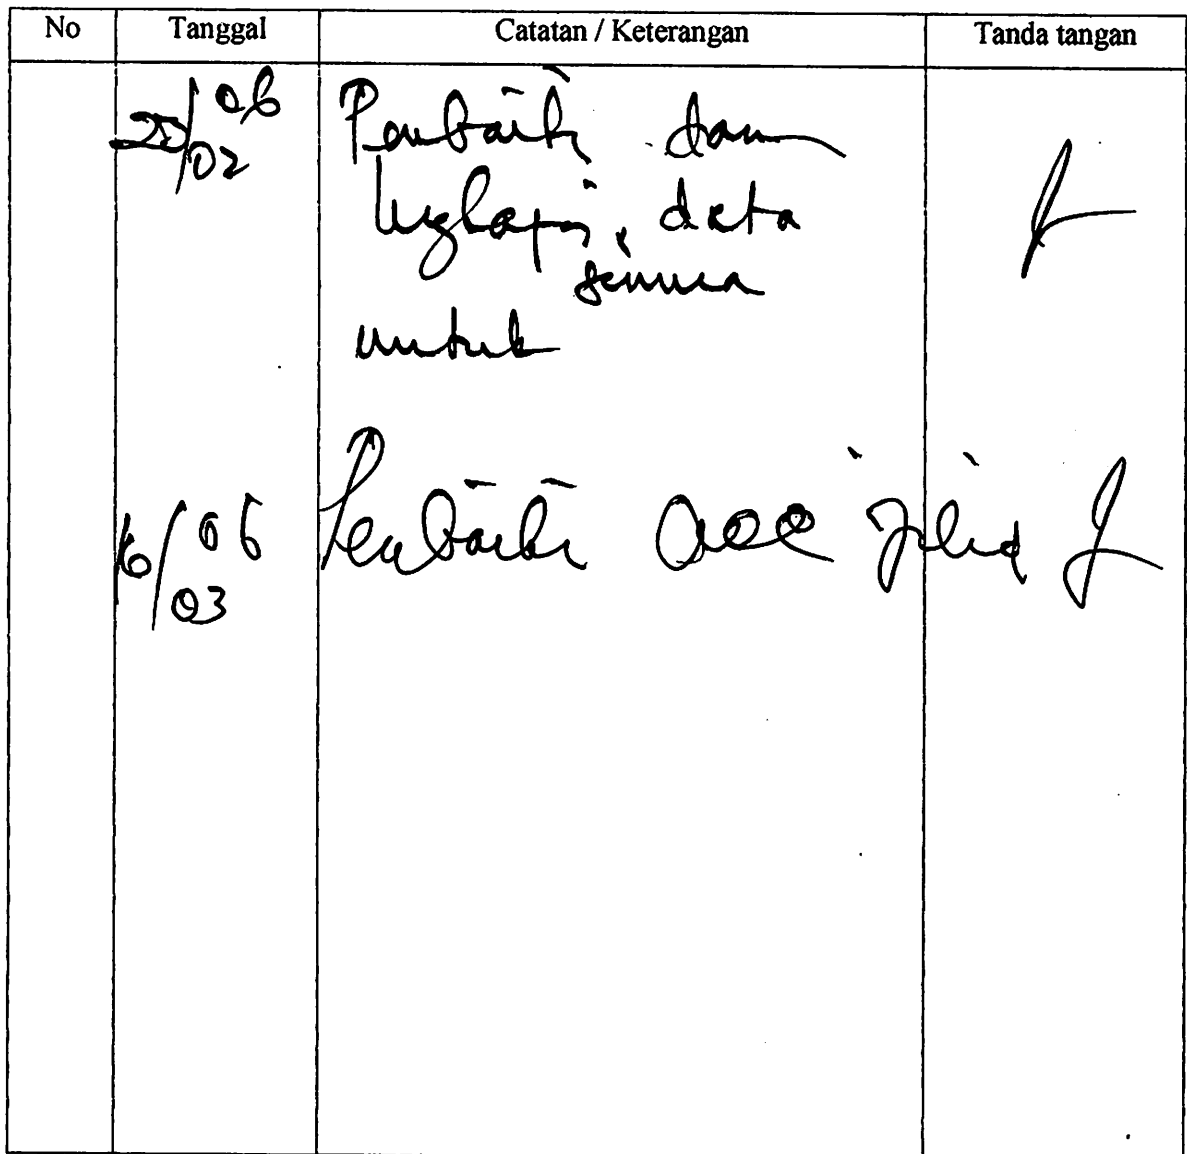 No Tanggal Catatan / Keterangan Tanda tangan
25/02 06 Perbaiki dan
lengkapi, data
semua
untuk
16/03 06 Perbaiki acc jilid